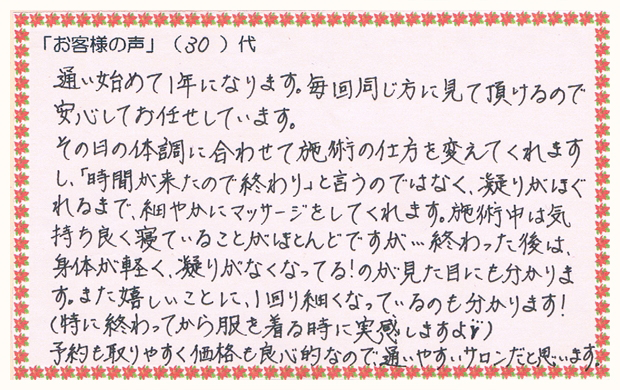 「お客様の声」（30）代
通い始めて1年になります。毎回同じ方に見て頂けるので
安心してお任せしています。
その日の体調に合わせて施術の仕方を変えてくれます
し、「時間が来たので終わり」と言うのではなく、凝りがほぐ
れるまで、細やかにマッサージをしてくれます。施術中は気
持ち良く寝ていることがほとんどですが…終わった後は、
身体が軽く、凝りがなくなってる!のが見た目にも分かりま
す。また嬉しいことに、1回り細くなっているのも分かります!
(特に終わってから服を着る時に実感しますよ)
予約も取りやすく価格も良心的なので、通いやすいサロンだと思います。